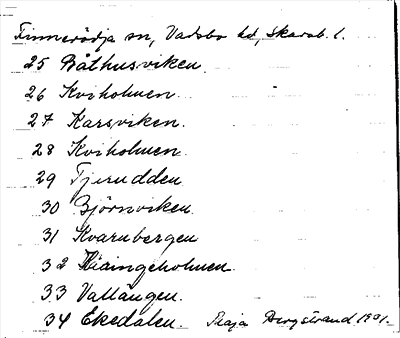 Finnerödja sn, Vadsbo hd, Skarab. l.
25 Båthusviken
26 Kviholmen.
27 Karsviken.
28 Kviholmen.
29 Tjerudden
30 Björnviken.
31 Kvarnbergen
32 Häingeholmen.
33 Vallängen.
34 Ekedalen. Maja Bergstrand 1921.